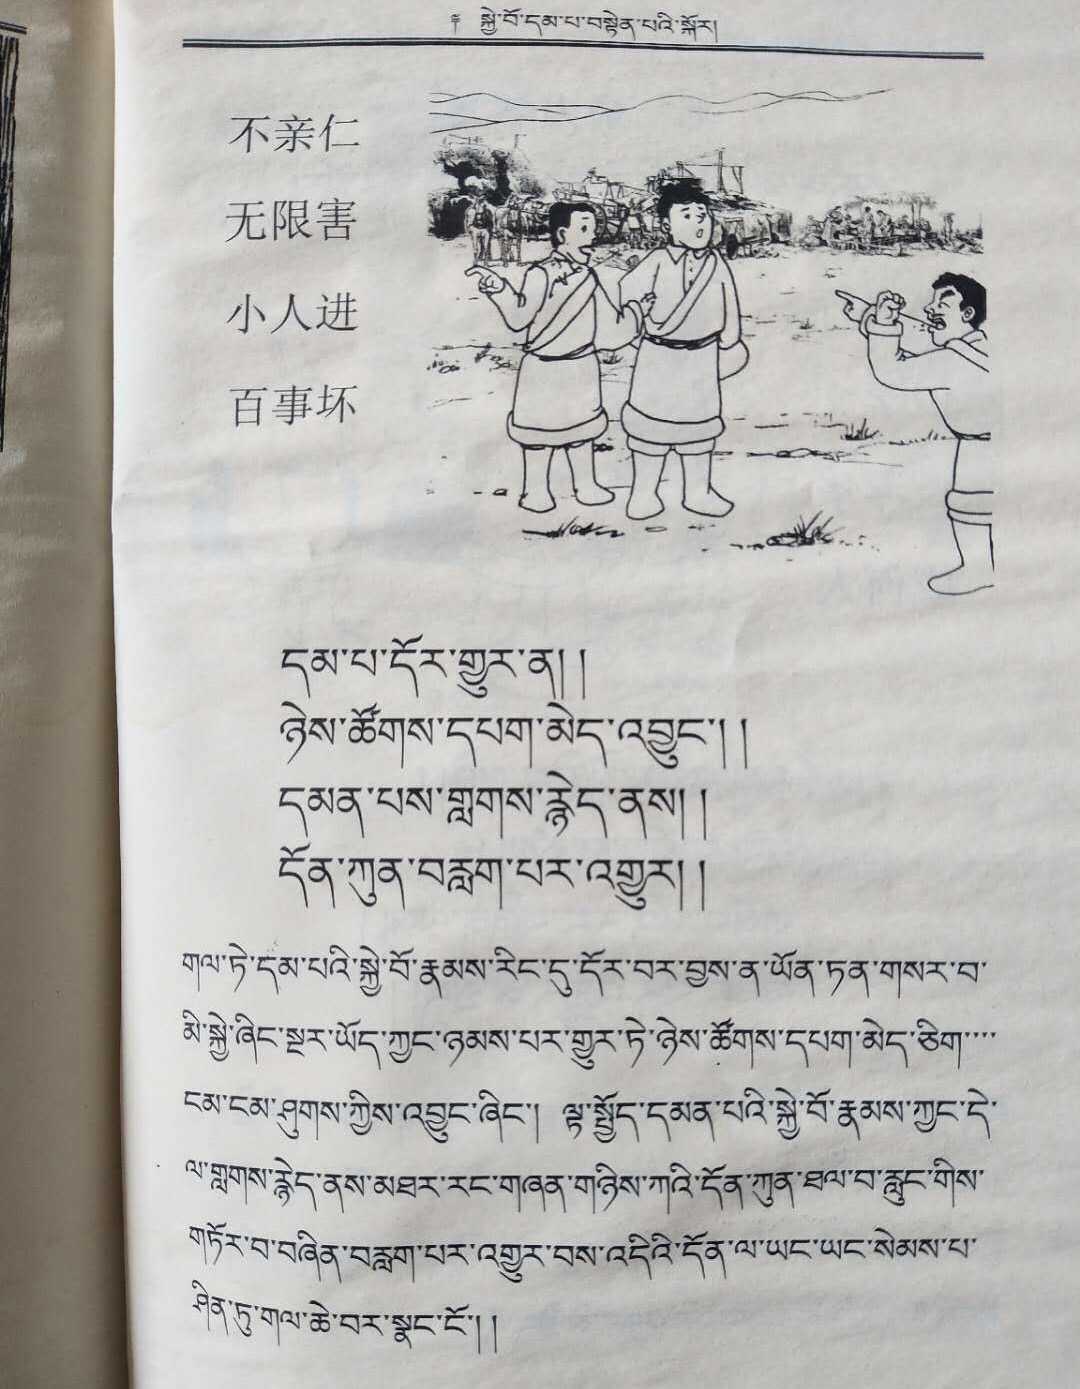 ༈ སྐྱེ་བོ་དམ་པ་བསྟེན་པའི་སྐོར།
不亲仁
无限害
小人进
百事坏
དམ་པ་དོར་གྱུར་ན།།
ཉེས་ཚོགས་དཔག་མེད་འབྱུང་།།
དམན་པས་གླགས་རྙེད་ནས།།
དོན་ཀུན་བརླག་པར་འགྱུར།།
གལ་ཏེ་དམ་པའི་སྐྱེ་བོ་རྣམས་རིང་དུ་དོར་བར་བྱས་ན་ཡོན་ཏན་གསར་བ་
མི་སྐྱེ་ཞིང་སྔར་ཡོད་ཀྱང་ཉམས་པར་གྱུར་ཏེ་ཉེས་ཚོགས་དཔག་མེད་ཅིག་…
ངམ་ངམ་ཤུགས་ཀྱིས་འབྱུང་ཞིང་། ལྟ་སྤྱོད་དམན་པའི་སྐྱེ་བོ་རྣམས་ཀྱང་དེ་
ལ་གླགས་རྙེད་ནས་མཐར་རང་གཞན་གཉིས་ཀའི་དོན་ཀུན་ཐལ་བ་རླུང་གིས་
གཏོར་བ་བཞིན་བརླག་པར་འགྱུར་བས་འདིའི་དོན་ལ་ཡང་ཡང་སེམས་པ་
ཤིན་ཏུ་གལ་ཆེ་བར་སྣང་ངོ་།།